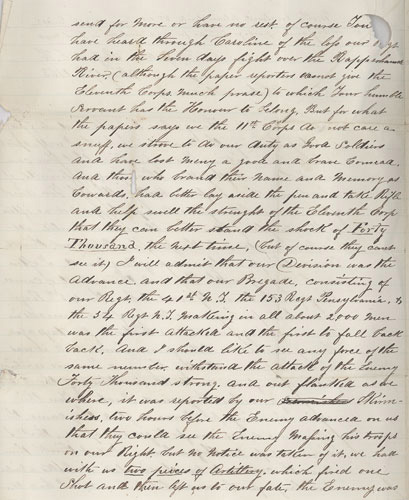 send for more or have no rest of course You
have heard through Caroline of the loss our Regt.
had in the Seven days fight over the Rappahannock
River (although the paper reporters cannot give the
Eleventh Corps much praise) to which Your humble
Servant has the Honour to belong, But for what
the papers says we the 11th Corps do not care a
snuff, we strove to do our duty as Good Soldiers
and have lost meny a good and brave Comrad.
And those who brand their name and Memory as
Cowards, had better lay aside the pen and take Rifle
and help swell the strenght of the Eleventh Corp
that they can better stand the shock of Forty
Thousand, the next time, (but of course they cant
see it) I will admit that our Division was the
Advance and that our Brigade, consisting of
our Regt, the 41st N.Y. the 153 Regt Pensylvania, &
the 54 Regt N.Y. Making in all about 2,000 men
was the first Attacked and the first to fall back
back, And I should like to see any force of the
same number, withstand the attack of the Enemy
Forty Thousand strong, and out flanked as we
where, it was reported by our Skirm-
ishers, two hours before the Enemy advanced on us
that they could see the Enemy Massing his troops
on our Right, but no Notice was taken of it, we had
with us two pieces of Artillery, which fired one
Shot and then left us to our fate, the Enemy was